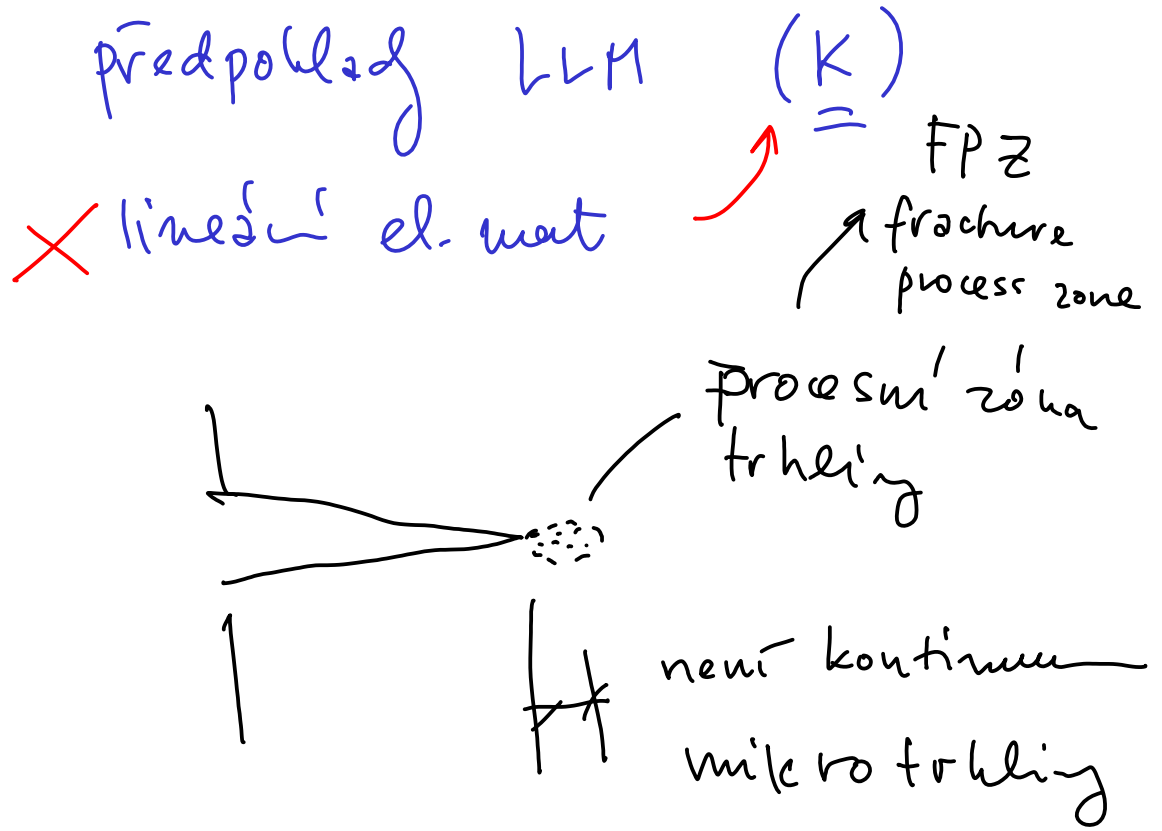 předpoklady LLM (K)
lineární el. mat
FPZ
fracture
process zone
procesní zóna
trhliny
není kontinuum
mikrotrhliny